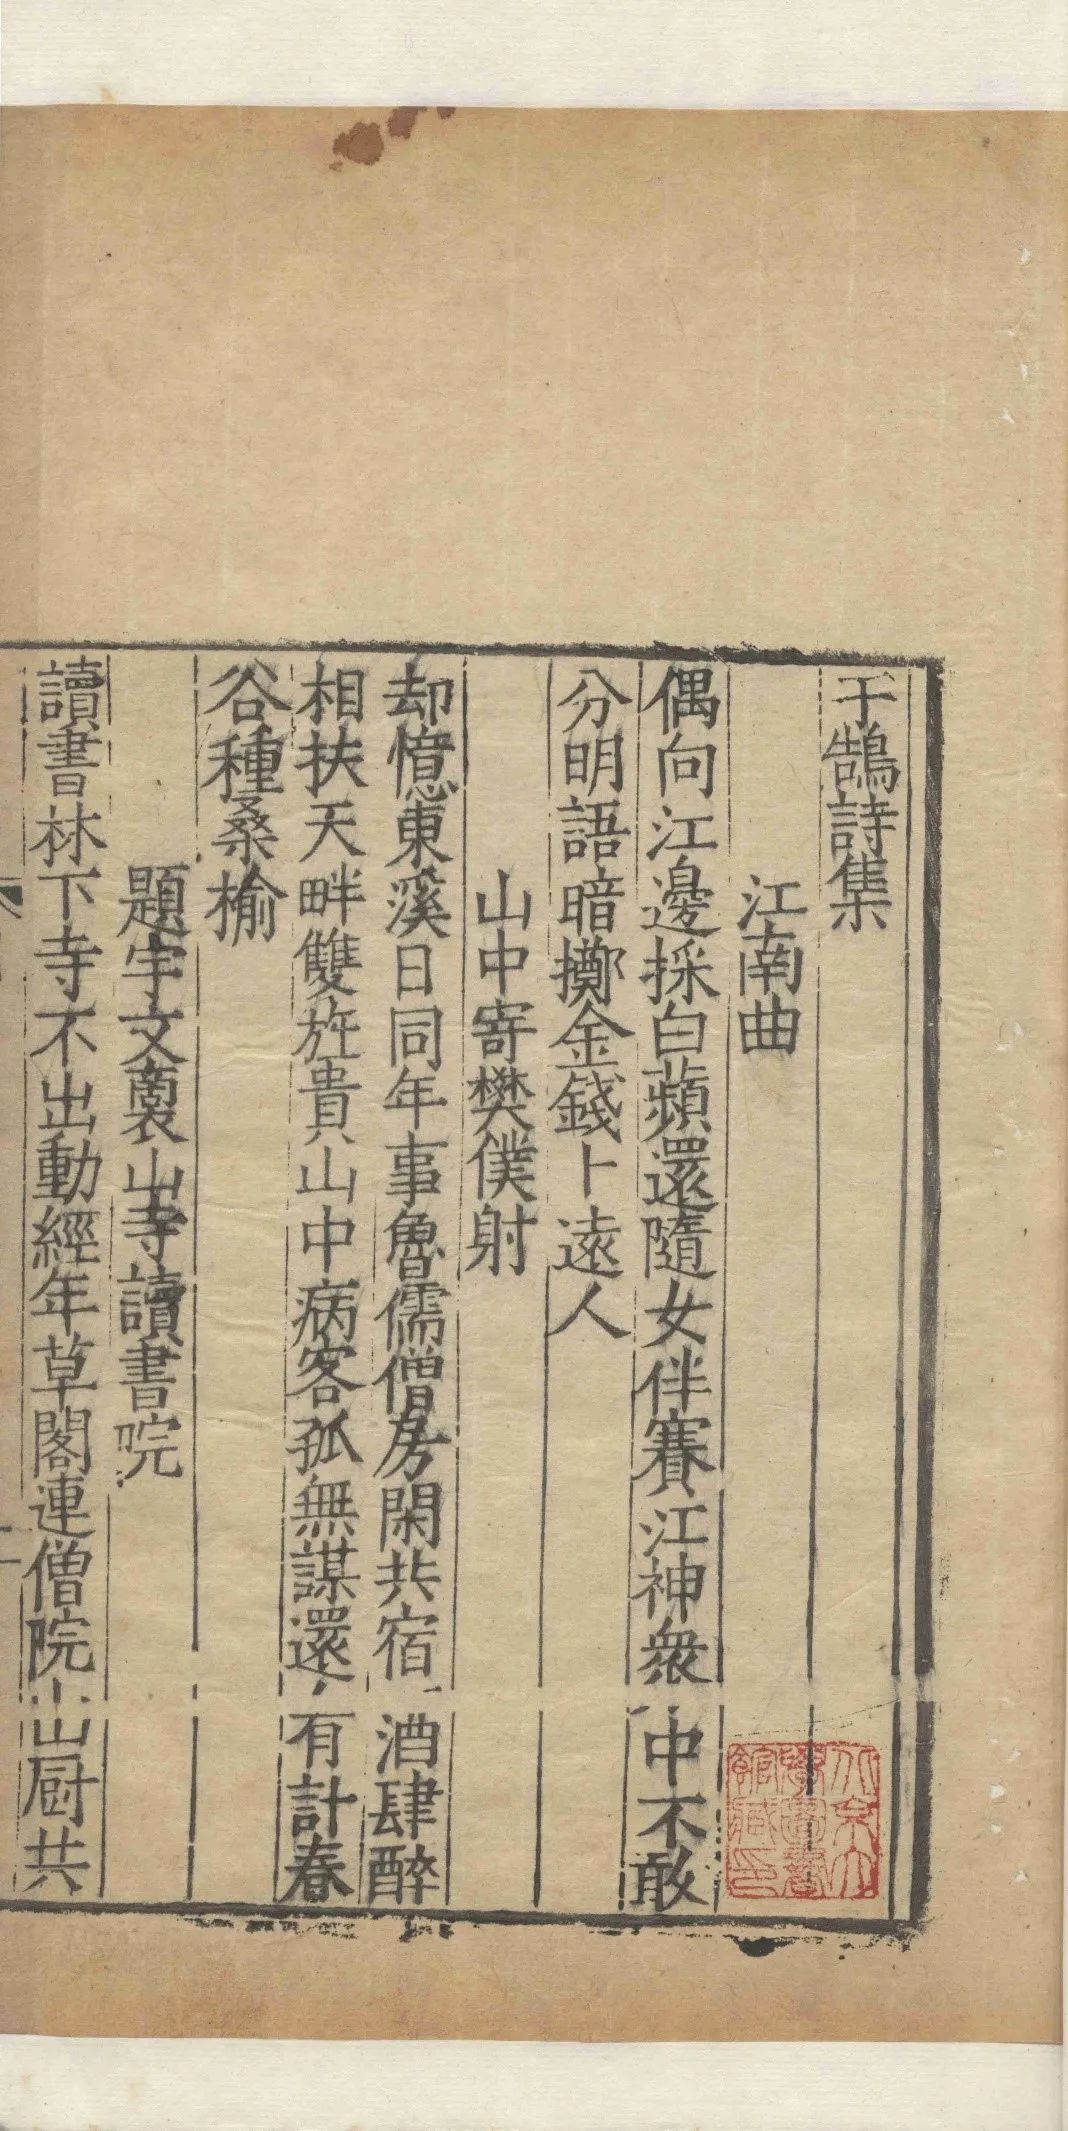 于鵠詩集
江南曲
偶向江邊採白蘋還隨女伴賽江神衆中不敢
分明語暗擲金錢卜遠人
山中寄樊僕射
却憶東溪日同年事魯儒僧房閑共宿酒肆醉
相扶天畔雙旌貴山中病客孤無謀還有計春
谷種桑榆
題宇文褭山寺讀書院
讀書林下寺不出動經年草閣連僧院山厨共
北京大學圖書館藏印